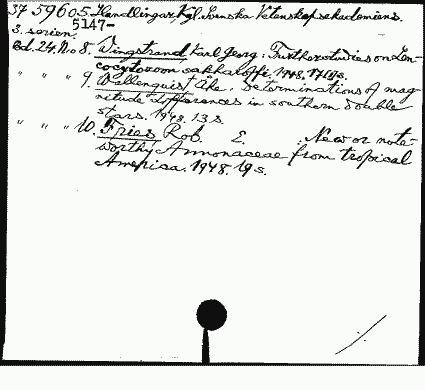 37 59605 Handlingar, Kgl. Svenska Vetenskapsakademiens.
5147-
3. serien.
Bd. 24. No 8. Wingstrand, Karl Georg: Further studies on Leu-
cocytozoon sakharoffi. 1948. 17 s.
" " " 9. Wallenquist Åke. Determinations of mag-
nitude differences in southern double
stars. 1948. 13 s.
" " " 10. Fries Rob. E. New or note-
worthy Annonaceae from tropical
America. 1948. 19 s.